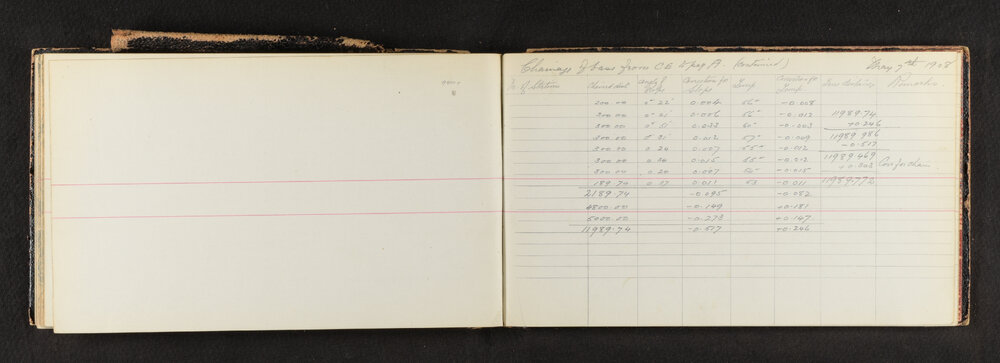 Chainage of base from C.E. to peg A. (continued) May 7th 1908
of Station Chained dist Angle of Slope Correction for Slope Temp Correction for Temp Remarks
200.00 0° 22' 0.004 56° -0.008
300.00 0 21 0.006 56° -0.012 11989.74
300.00 0 51 0.033 60° -0.003 +0.246
300.00 0 31 0.012 57° -0.009 11989.986
300.00 0 24 0.007 55° -0.012 -0.517
300.00 0.015 55° 11989.469 Corr for chain
300.00 0 24 0.007 -0.015
189.74 0 37 0.011 53 -0.011 11989.772
2189.74 -0.095 -0.082
4800.00 -0.149 +0.181
5000.00 -0.273 +0.147
11989.74 -0.517 +0.246